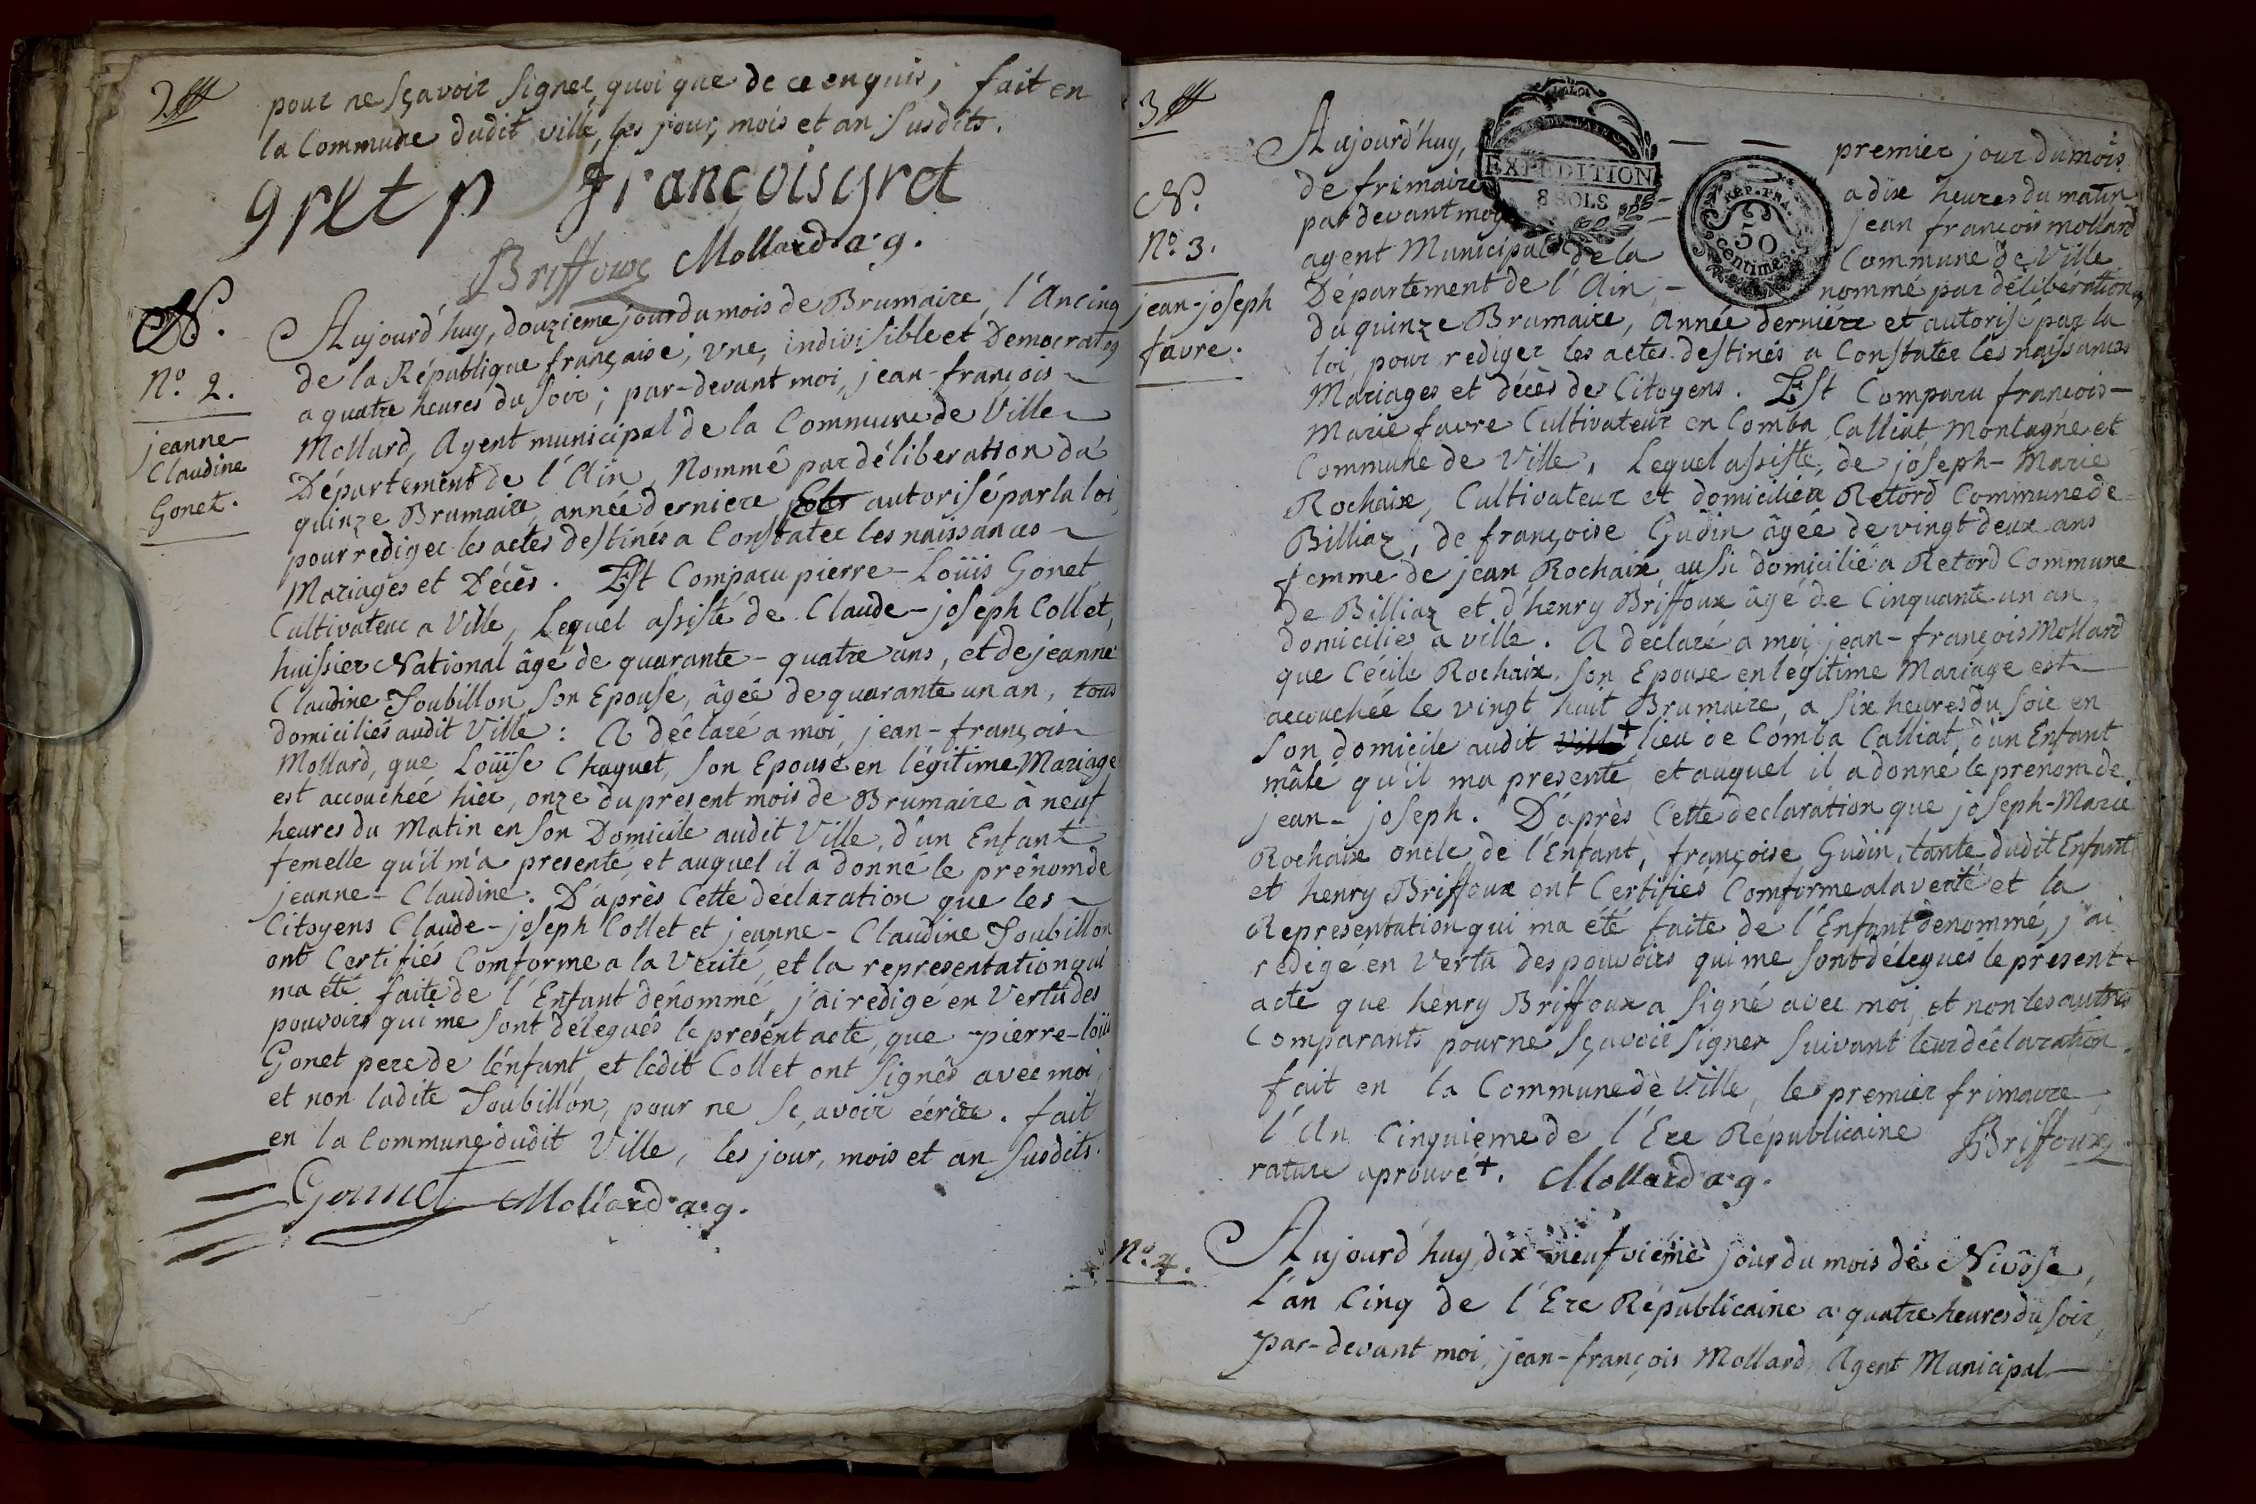 2
pour ne sçavoir signer, quoi que de ce enquis, fait en
la Commune dudit ville, les jour, mois et an susdits.
gret p françois gret
Briffoux Mollard a.g.
N.
N.o 2.
jeanne-
Claudine
Gonet.
Aujourd'huy, douzieme jour du mois de Brumaire, l'An cinq
de la République française, une, indivisible et Democratiq
a quatre heures du soir; par-devant moi, jean-françois
Mollard, Agent municipal de la Commune de Ville
Département de l'Ain, Nommé par déliberation du
quinze Brumaire, année derniere, autorisé par la loi,
pour rediger les actes destinés a Constater les naissances
Mariages et Décès. Est Comparu pierre-Loüis Gonet
Cultivateur a Ville, Lequel assisté de Claude-joseph Collet,
huissier National âgé de quarante-quatre ans, et de jeanne
Claudine Joubillon son Epouse, âgée de quarante un an, tous
domiciliés audit Ville: A déclaré a moi, jean-françois
Mollard, que Loüise Chaquet, son Epouse en légitime Mariage
est accouchée hier, onze du present mois de Brumaire à neuf
heures du Matin en son Domicile audit Ville, d'un Enfant
femelle qu'il m'a presenté, et auquel il a donné le prénom de
jeanne-Claudine. D'après Cette déclaration que les
Citoyens Claude-joseph Collet et jeanne-Claudine Joubillon
ont Certifiés Comforme a la Verité, et la representation qui
ma été faite de l'Enfant dénommé, j'ai redigé en Vertu des
pouvoirs qui me sont délegués le présent acte, que pierre-loüis
Gonet pere de l'enfant, et ledit Collet ont signés avec moi,
et non ladite Joubillon, pour ne sçavoir écrire. fait
en la Commune dudit Ville, les jour, mois et an susdits.
Gonnet Mollard a.g.
3
EXPEDITION
8 SOLS
REP. FRA.
50
centimes
N.
N.o 3.
jean-joseph
favre.
Aujourd'huy, premier jour du mois
de frimaire a dix heures du matin
par devant moy jean françois mollard
agent Municipal de la Commune de Ville
Département de l'Ain, nommé par délibération
du quinze Brumaire, Année derniére et autorisé par la
loi, pour rediger les actes destinés a Constater les naissances
Mariages et décès des Citoyens. Est Comparu françois-
Marie favre Cultivateur en Comba Calliat, Montagne et
Commune de Ville, Lequel assisté, de joseph-Marie
Rochaix, Cultivateur et domicilié a Retord Commune de
Billiaz, de françoise Gudin âgée de vingt deux ans
femme de jean Rochaix, aussi domicilié a Retord Commune
de Billiaz et d'henry Briffoux âgé de Cinquante un an,
domiciliés a ville. A déclaré a moi, jean-françois Mollard
que Cécile Rochaix, son Epouse en légitime Mariage est
accouchée le vingt huit Brumaire, a six heures du soir en
son domicile audit Ville + lieu de Comba Calliat, d'un Enfant
mâle qu'il ma presenté, et auquel il a donné le prenom de
jean-joseph. D'après Cette declaration que joseph-Marie
Rochaix oncle de l'Enfant, françoise Gudin, tante dudit Enfant
et henry Briffoux ont Certifiés Comforme a la verité et la
Representation qui ma été faite de l'Enfant denommé, j'ai
redigé en Vertu des pouvoirs qui me sont délegués le present
acte que henry Briffoux a signé avec moi, et non les autres
Comparants pour ne sçavoir signer suivant leur déclaration.
fait en la Commune de Ville, le premier frimaire
l'An Cinquieme de l'Ere Républicaine Briffoux
rature aprouvé +. Mollard a.g.
N.o 4.
Aujourd'huy, dix-neufvieme jour du mois de Nivôse,
l'an Cinq de l'Ere Républicaine a quatre heures du soir,
par-devant moi, jean-françois Mollard, Agent Municipal